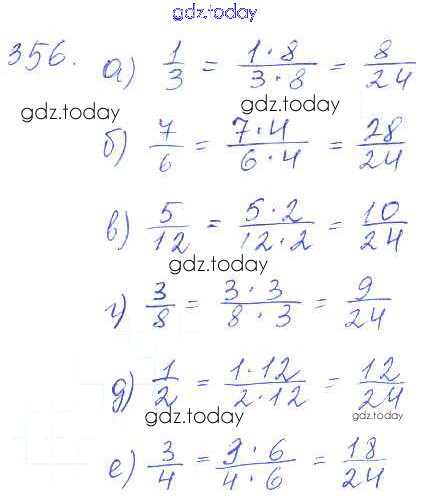 gdz.today
356. а) 1/3 = 1·8/3·8 = 8/24
gdz.today gdz.today
б) 7/6 = 7·4/6·4 = 28/24
в) 5/12 = 5·2/12·2 = 10/24
gdz.today
г) 3/8 = 3·3/8·3 = 9/24
д) 1/2 = 1·12/2·12 = 12/24
gdz.today
е) 3/4 = 3·6/4·6 = 18/24
gdz.today